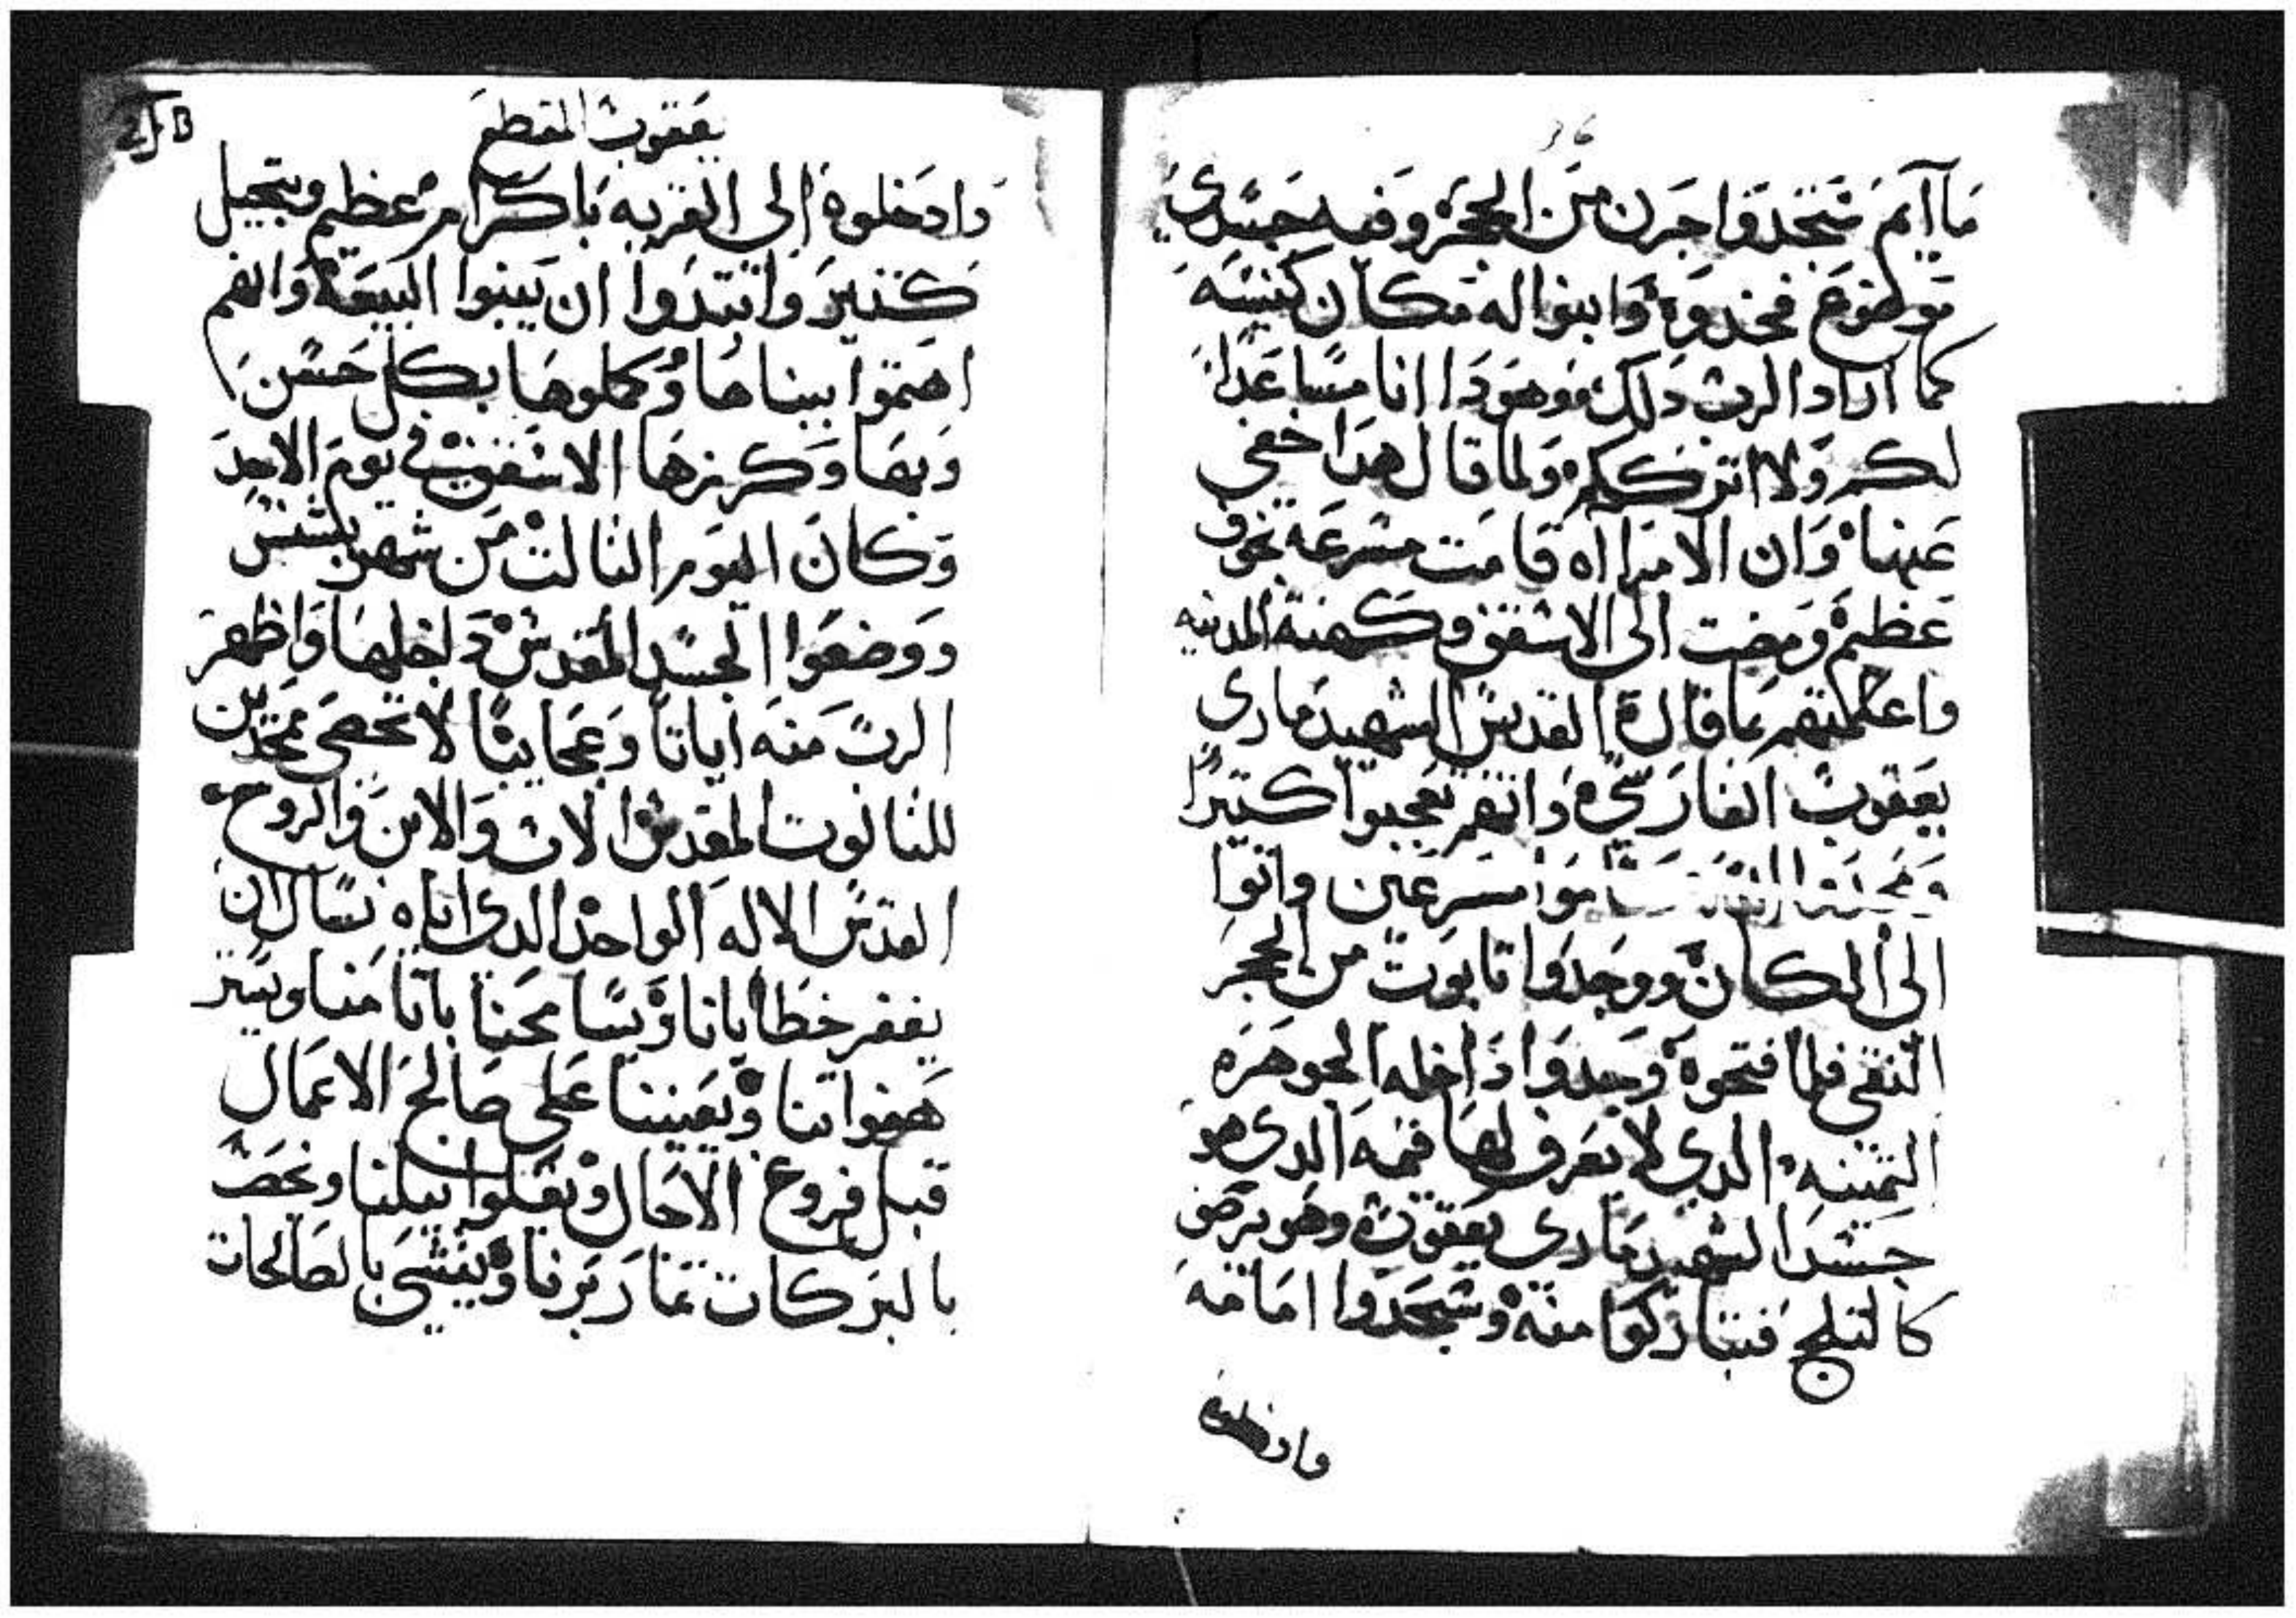 مآايم ستجدوا جرن من الحجر وفيه جسدي
موضوع فخدوه وابنوا له مكان كنيسه
كما اراد الرب دلك وهودا انا مساعدا
لكم ولا اترككم ولما قال هدا خفي
عينها وان الامرااه قامت مسرعه بخوف
عظيم ومضت الى الاسقف وكهنة المدينه
واعلمتهم بما قاله القديس الشهيد ماري
يعقوب الفارسي وانهم تعجبوا كتيرا
ومجدوا مسرعين واتوا
الى المكان ووجدوا تابوت من الحجر
النقي فلما فتحوه وجدوا داخله الجوهره
التمينه الدي لا يعرف لها قيمه الدي هو
جسد الشهيد ماري يعقوب وهو
كالتلج فتباركوا منه وسجدوا امامه
وادخلوه
يعقوب المقطع
وادخلوه الى القريه باكرام عظيم وبتجيل
كتير وابتدوا ان يبنوا البيعه وانهم
اهتموا ببناها وكملوها بكل حسن
وبها وكرزها الاسقف في يوم الاحد
وكان اليوم التالت من شهر بشنس
ووضعوا الجسد المقدس داخلها واظهر
الرب منه اياتا وعجايبا لا تحصى ممجدين
للتالوت المقدس الاب والابن والروح
القدس الاله الواحد الدى اياه نسال ان
يغفر خطايانا ويسامحنا باتامنا ويستر
هفواتنا ويعيننا على صالح الاعمال
قبل فروغ الاجال ويقبلوا نيلنا ونحصب
بالبركات تمار برنا ويفشي بالصالحات